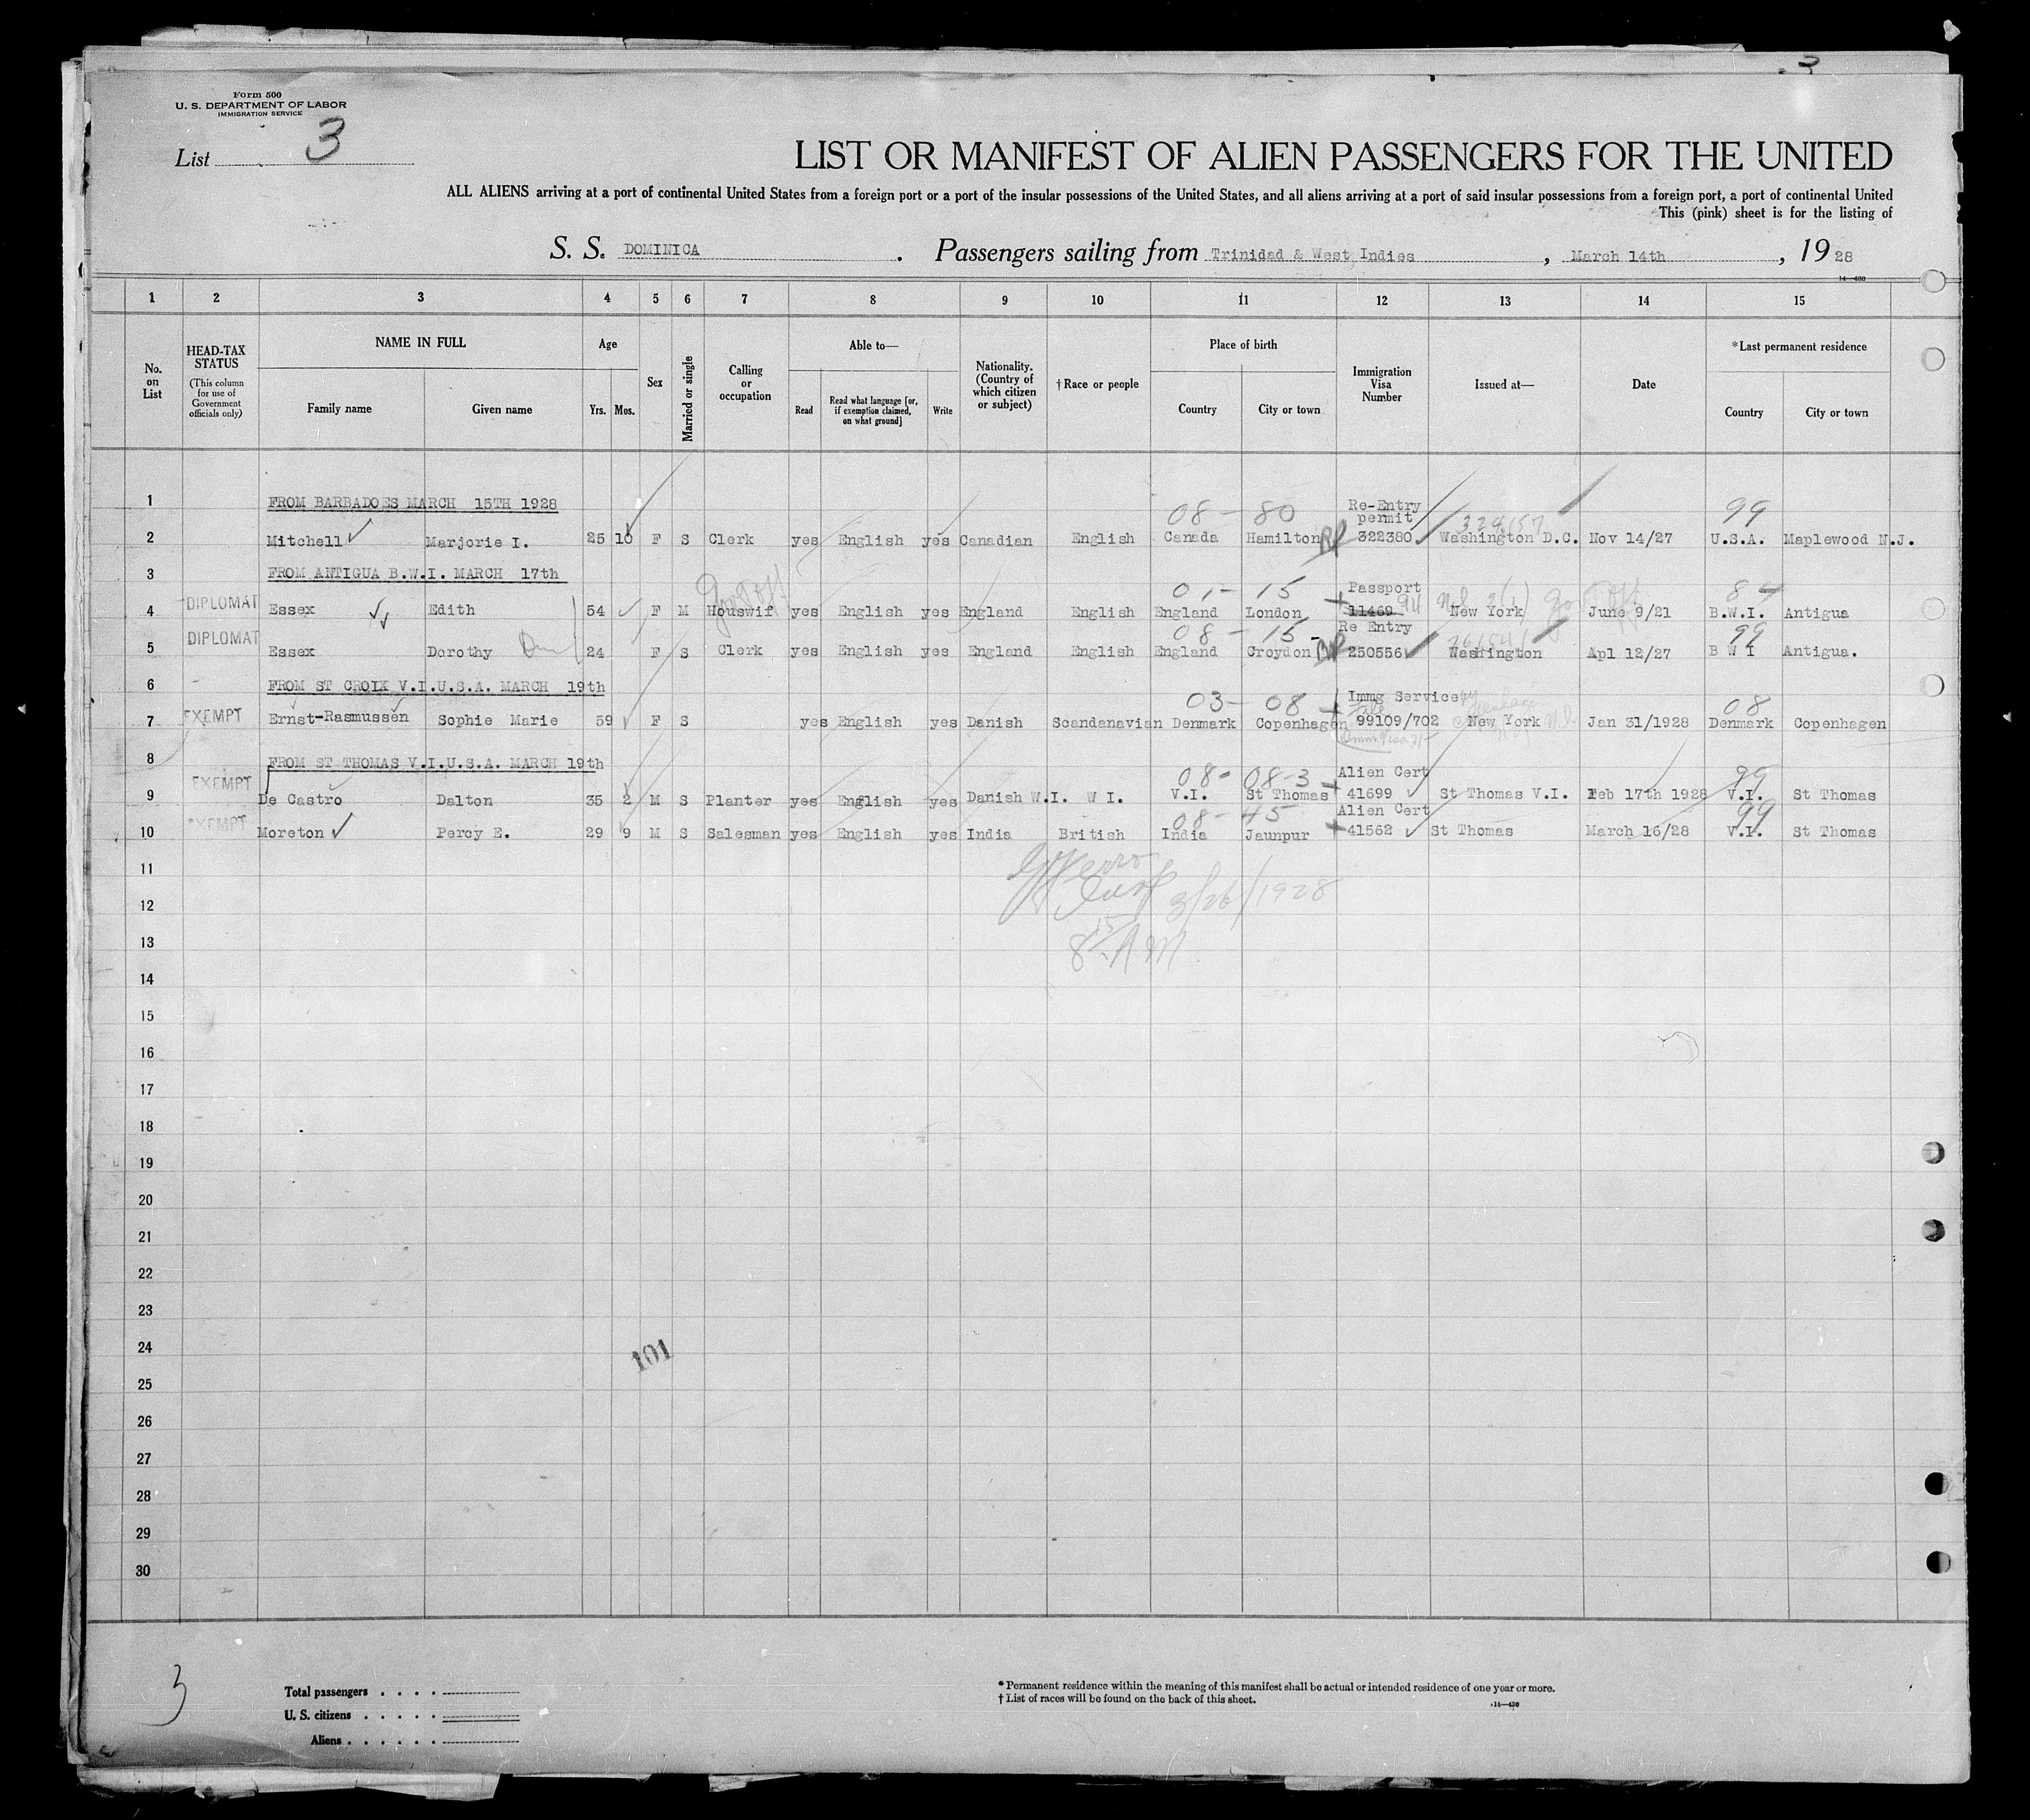 3
Form 500
U. S. DEPARTMENT OF LABOR
IMMIGRATION SERVICE
List 3
LIST OR MANIFEST OF ALIEN PASSENGERS FOR THE UNITED
ALL ALIENS arriving at a port of continental United States from a foreign port or a port of the insular possessions of the United States, and all aliens arriving at a port of said insular possessions from a foreign port, a port of continental United
This (pink) sheet is for the listing of
S. S. DOMINICA . Passengers sailing from Trinidad & West Indies , March 14th , 19 28
14—430
1 2 3 4 5 6 7 8 9 10 11 12 13 14 15
No. on List
HEAD-TAX STATUS
(This column for use of Government officials only)
NAME IN FULL
Family name Given name
Age
Yrs. Mos.
Sex
Married or single
Calling or occupation
Able to—
Read
Read what language [or, if exemption claimed, on what ground]
Write
Nationality. (Country of which citizen or subject)
† Race or people
Place of birth
Country City or town
Immigration Visa Number
Issued at—
Date
*Last permanent residence
Country City or town
1 FROM BARBADOES MARCH 15TH 1928
08 - 80 Re-Entry permit 99
2 Mitchell Marjorie I. 25 10 F S Clerk yes English yes Canadian English Canada Hamilton 322380 Washington D.C. Nov 14/27 U.S.A. Maplewood N.J.
3 FROM ANTIGUA B.W.I. MARCH 17th
01 - 15 Passport 84
4 DIPLOMAT Essex Edith 54 F M Houswif yes English yes England English England London 11469 New York June 9/21 B.W.I. Antigua
08 - 15 - Re Entry 99
5 DIPLOMAT Essex Dorothy 24 F S Clerk yes English yes England English England Croydon 250556 Washington Apl 12/27 B W I Antigua.
6 FROM ST CROIX V.I.U.S.A. MARCH 19th
03 - 08 Immg Service File 08
7 EXEMPT Ernst-Rasmussen Sophie Marie 59 F S yes English yes Danish Scandanavian Denmark Copenhagen 99109/702 New York Jan 31/1928 Denmark Copenhagen
8 FROM ST THOMAS V.I.U.S.A. MARCH 19th
08 - 08-3 Alien Cert 99
9 EXEMPT De Castro Dalton 35 2 M S Planter yes English yes Danish W.I. W I. V.I. St Thomas 41699 St Thomas V.I. Feb 17th 1928 V.I. St Thomas
08 - 45 Alien Cert 99
10 EXEMPT Moreton Percy E. 29 9 M S Salesman yes English yes India British India Jaunpur 41562 St Thomas March 16/28 V.I. St Thomas
11
12 3/26/1928
13 8 15 AM
14
15
16
17
18
19
20
21
22
23
24 101
25
26
27
28
29
30
3
Total passengers . . . .
U. S. citizens . . . . .
Aliens . . . . . .
* Permanent residence within the meaning of this manifest shall be actual or intended residence of one year or more.
† List of races will be found on the back of this sheet.
14—430